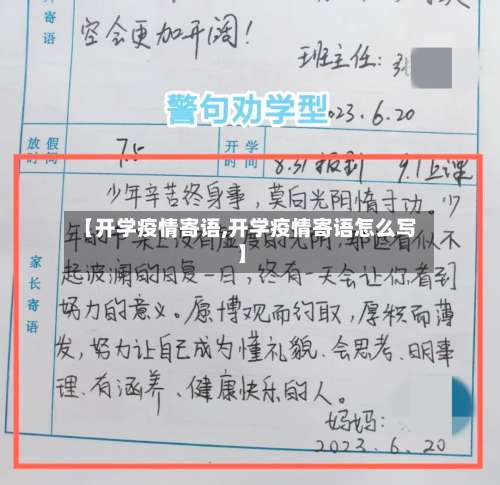 寄语
空会更加开阔！
班主任：
警句劝学型
2023.6.20
放假时间
7.5
开学时间
8.31报到 9.1上课
少年辛苦终身事，莫向光阴惰寸功。少
【开学疫情寄语,开学疫情寄语怎么写
】
年的
家长寄语
起波澜的日复一日，终有一天会让你看到
努力的意义。愿博观而约取，厚积而薄
发，努力让自己成为懂礼貌、会思考、明事
理、有涵养、健康快乐的人。
妈妈：
2023.6.20